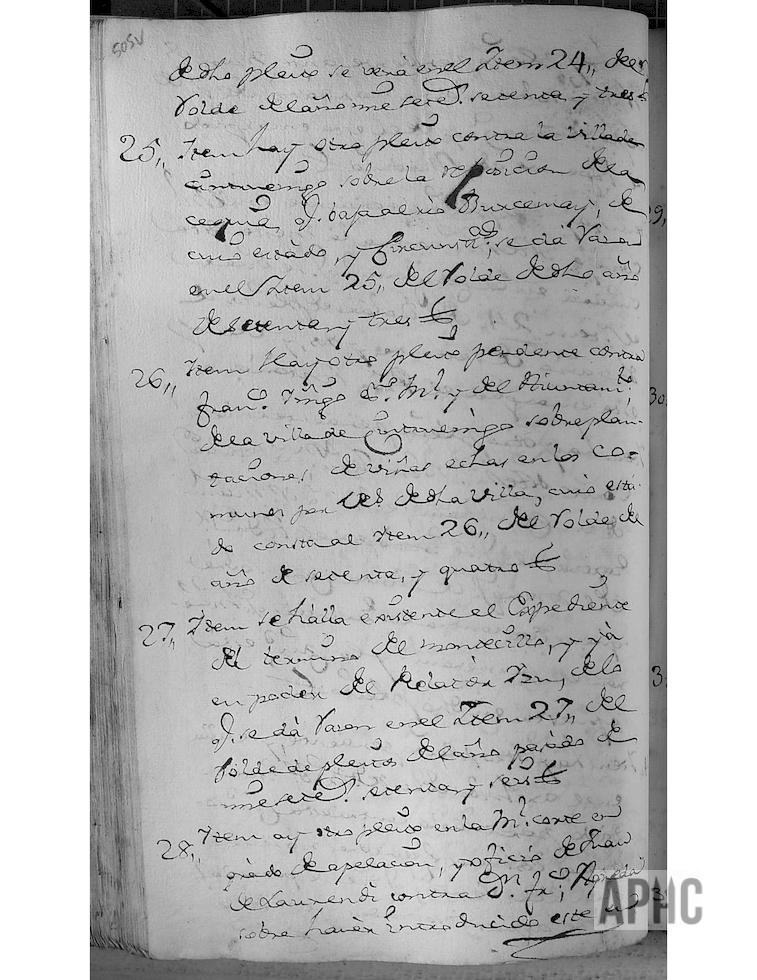 505V
de dho pleito se verá en el Item 24,, del
Rolde del año mil setec.s setenta y tres
25,, Item hay otro pleito contra la villa de
Cintruenigo sobre la reposicion de la
cequia q.e baja al rio, de
cuio estado, y Circunst.as, se dá Razon
en el Item 25,, del Rolde de dho año
de setenta y tres
26,, Item Hay otro pleito pendiente contra
Fran.co Iñigo Es.no R.l y del Aiuntam.to
de la villa de Cintruenigo sobre plan-
taciones de viñas echas en los Co-
munes por vez.s de dha villa, cuio esta-
do consta al Item 26,, del Rolde del
año de setenta, y quatro
27,, Item se halla existente el Expediente
del termino del montecillo, y yá
en poder del Relator, de lo
q.e se dá Razon en el Item 27,, del
Rolde de pleitos del año pasado de
mil setec.s setenta y seis
28,, Item ay otro pleito en la R.l Corte en
grado de apelacion, y oficio de Juan
de Laurendi contra D.n Fr.co
sobre haver introducido este
29,
30,
3
3
APHC